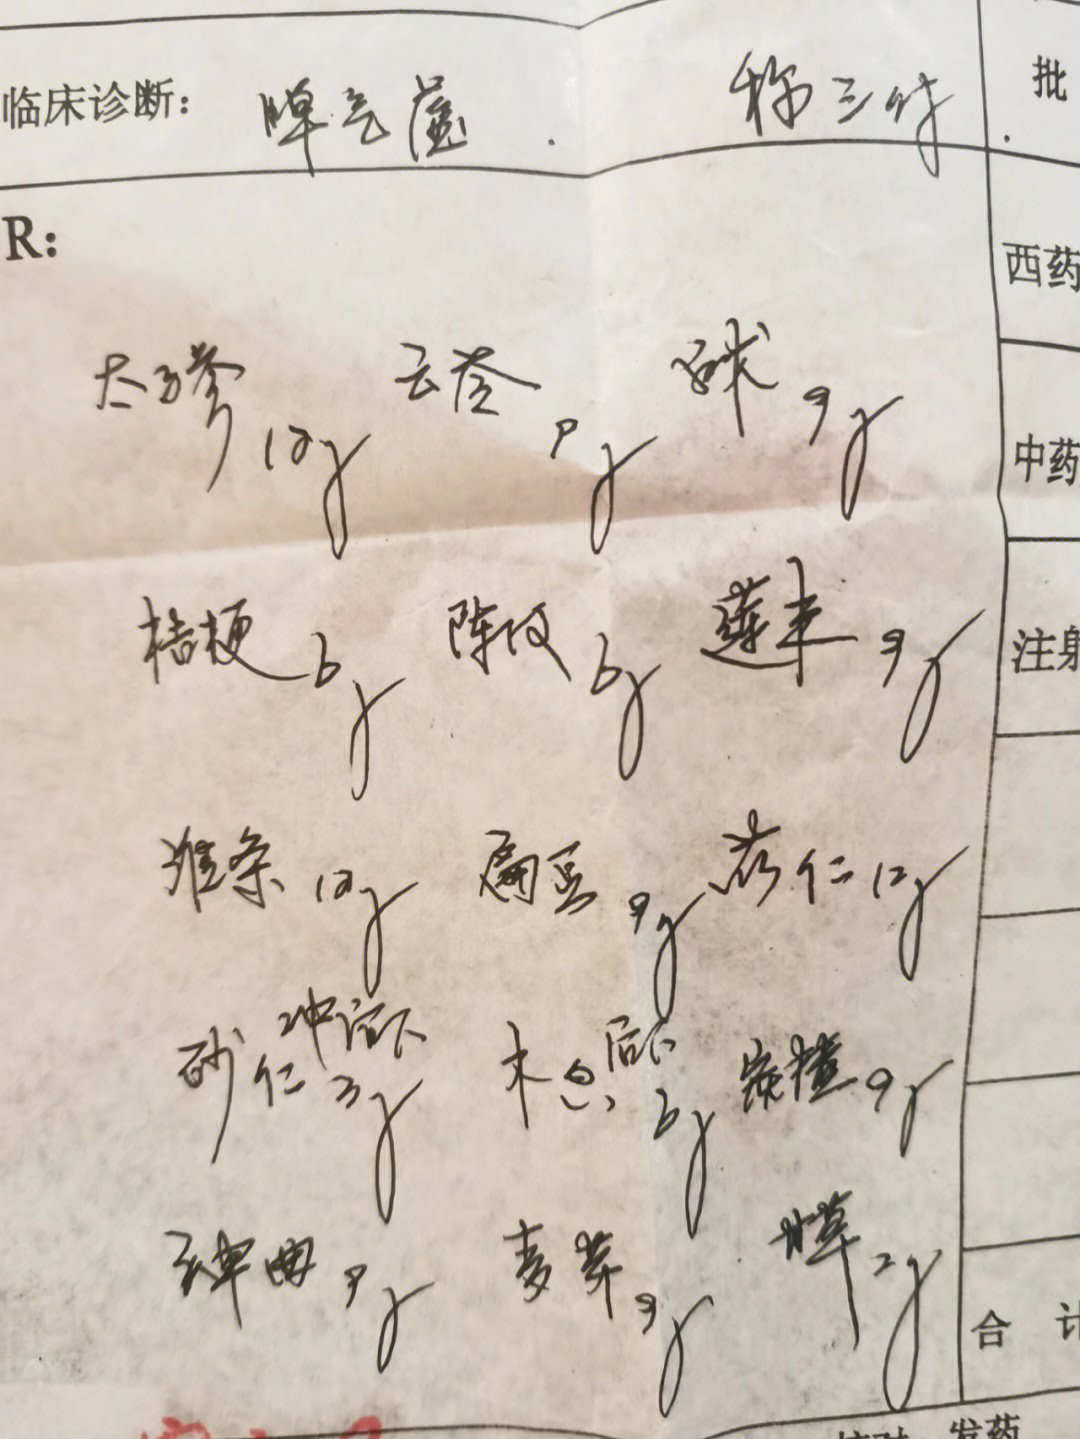 临床诊断: 脾气虚. 称三付 批
R:
西药
太子参 12g 云苓 9g 白术 9g
中药
桔梗 6g 陈皮 6g 莲米 9g
注射
淮条 12g 扁豆 9g 苡仁 12g
砂仁 冲后下 3g 木香 后下 6g 炭楂 9g
神曲 9g 麦芽 9g 甘草 2g
合 计
核对 发药